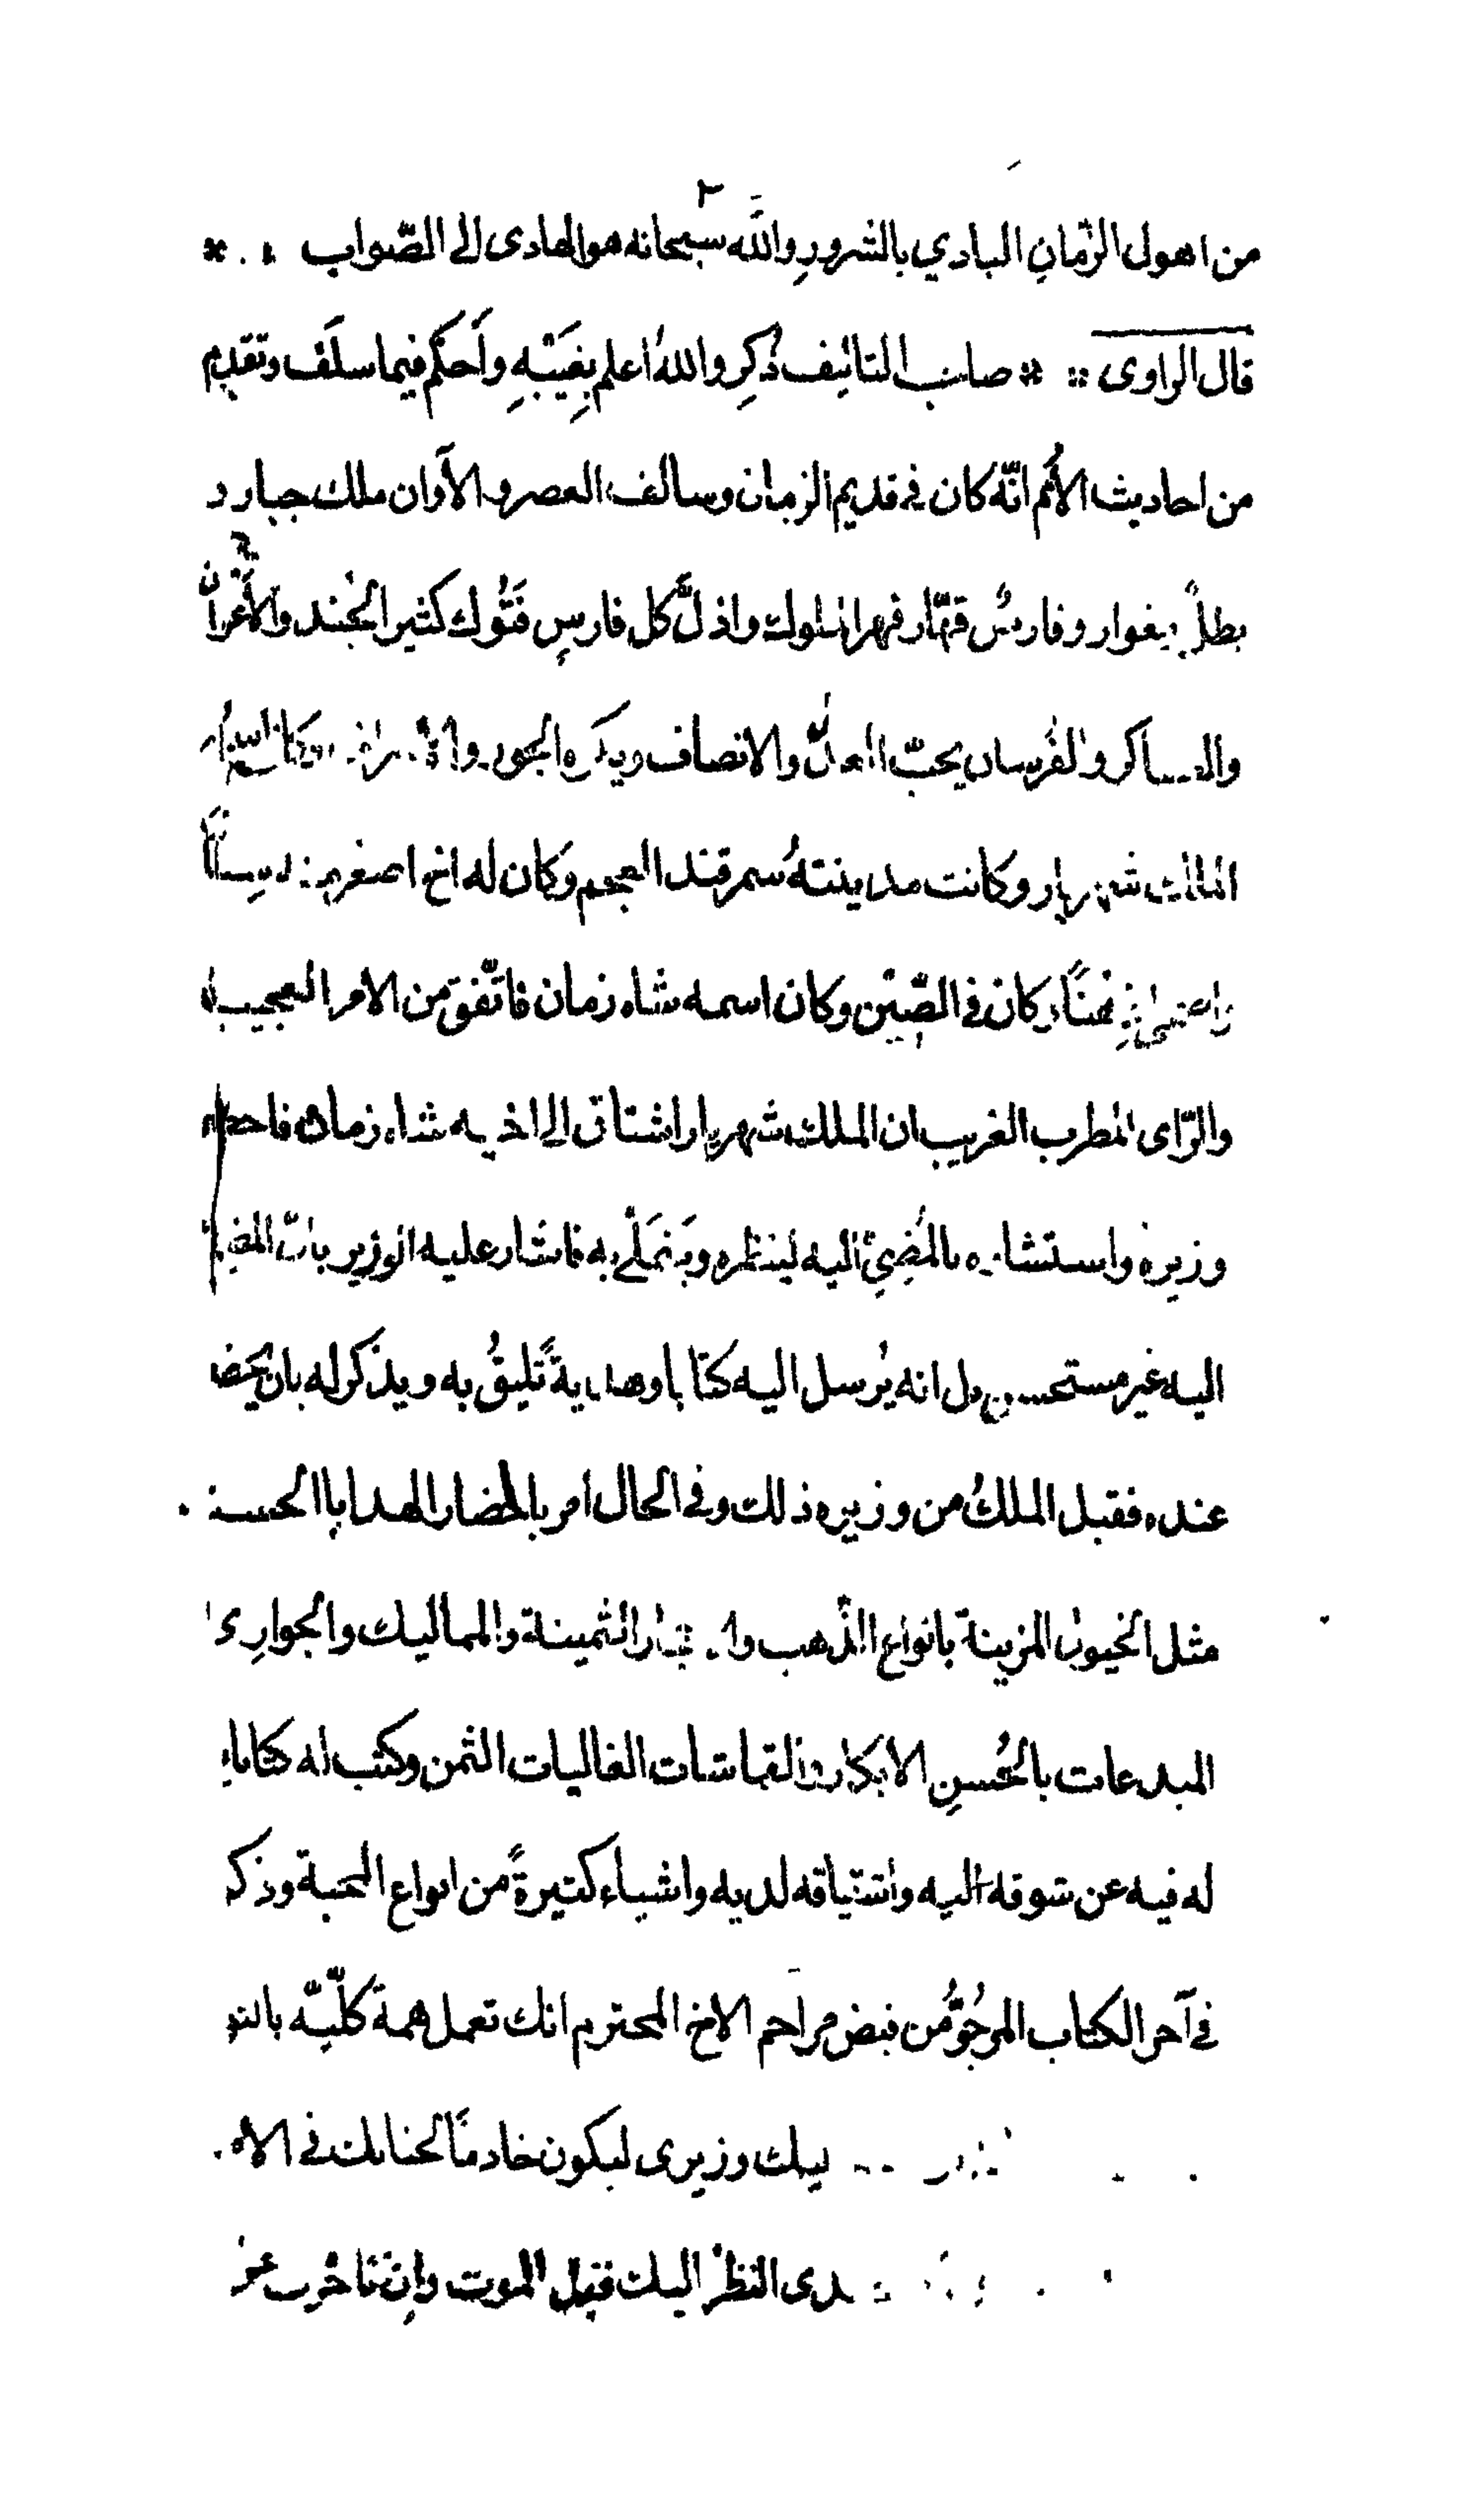 ٢
من اهول الزّمانِ البادي بالشرورِ واللّه سبحانه هو الهادى الى الصّواب
قال الراوى صاحب التاليف ذُكِر واللهُ اعلم بِغَيْبِهِ وأحكَم فيما سلَف وتقدم
من احاديث الأُمم انّه كان فى قديم الزمان وسالف العصر والآوان ملك جبار و
بطلٌ مغوار وفارسٌ قهّار قهر الملوك واذلَّ كل فارسٍ فَتُوك كثير الجُند والأعوان
والعساكر والفُرسان يحبّ العدل والانصاف ويكره الجور وكان اسم
الملك شهريار وكانت مدينتهُ سمرقند العجم وكان له اخ اصغر
كان فى الصّين وكان اسمه شاه زمان فاتّفق من الامر العجيب
والرّاى المطرب الغريب ان الملك شهريار اشتاق الى اخيه شاه زمان فاحضر
وزيره واستشاره بالمُضِىّ اليه لينظره ويَتمَلّى به فاشار عليه الوزير بانّ المضى
اليه غير مستحسن بل انه يُرسل اليه كتابا وهديةً تليقُ به ويذكر له بان يحضر
عنده فقبل الملكُ من وزيره ذلك وفى الحال امر باحضار الهدايا الحسنة
مثل الخيول المزينة بانواع الذّهب والاحجار الثمينة والمماليك والجوارِى
المبدعات بالحُسنِ الابكار والقماشات الغاليات الثمن وكتب له كتابا
له فيه عن شوقه اليه واشتياقه لديه واشياء كثيرةً من انواع المحبة وذكر
فى آخر الكتاب المرجُوُّ من فيض مراحم الاخ المحترم انك تعمل همة كلّيّه بالتو
اليك وزيرى ليكون خادمًا لجنابك فى
النظرُ اليك قبل الموت وان تاخرت عن